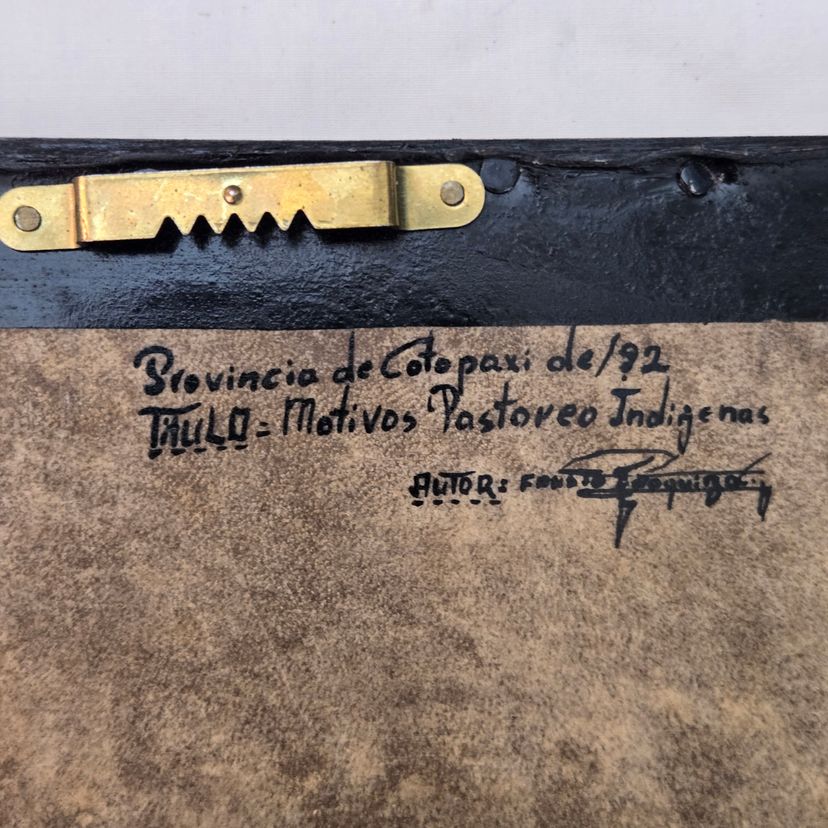 Provincia de Cotopaxi de/92
TITULO = Motivos Pastoreo Indigenas
AUTOR = FAUSTO